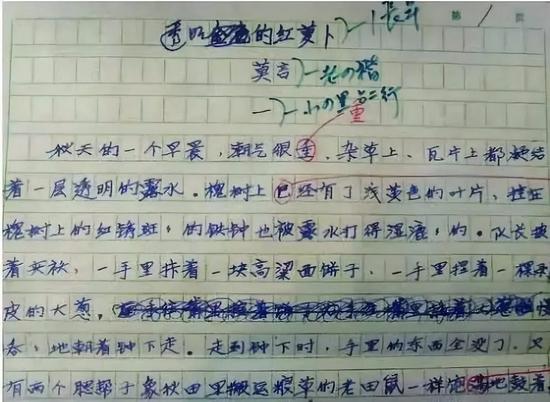 第 1 页
透明的红萝卜
莫言
一
小四黑占二行
重
秋天的一个早晨，潮气很重，杂草上、瓦片上都凝结
着一层透明的露水。槐树上已经有了浅黄色的叶片，挂在
槐树上的红锈斑々的铁钟也被露水打得湿漉々的。队长披
着夹袄，一手里拤着一块高粱面饼子，一手里捏着一棵剥
皮的大葱，慢
吞々地朝着钟下走。走到钟下时，手里的东西全没了，只
有两个腮帮子象秋田里搬运粮草的老田鼠一样饱满地鼓着